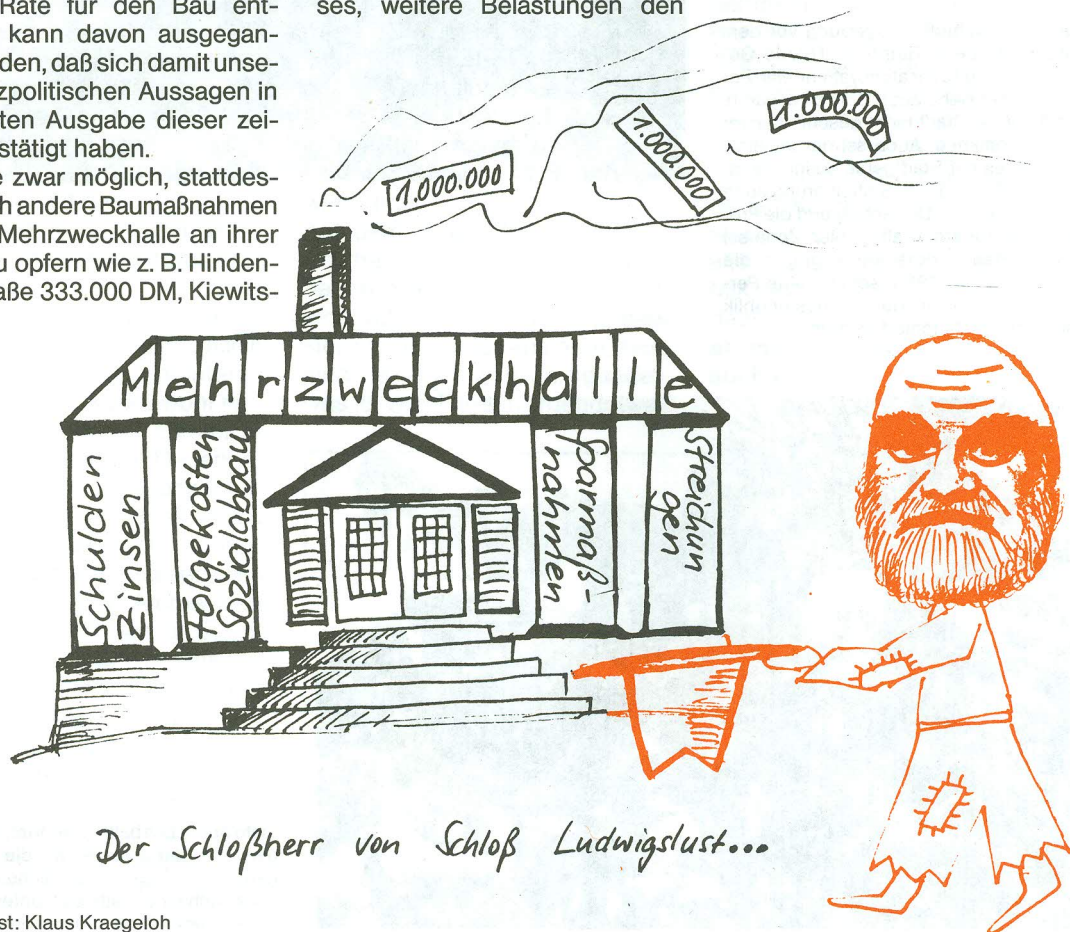 Rate für den Bau ent-
kann davon ausgegan-
den, daß sich damit unse-
zpolitischen Aussagen in
ten Ausgabe dieser zei-
stätigt haben.
e zwar möglich, stattdes-
h andere Baumaßnahmen
Mehrzweckhalle an ihrer
u opfern wie z. B. Hinden-
aße 333.000 DM, Kiewits-
ses, weitere Belastungen den
1.000.000
1.000.000
1.000.000
Mehrzweckhalle
Schulden
Zinsen
Folgekosten
Sozialabbau
Sparmaß-
nahmen
Streichun
gen
Der Schloßherr von Schloß Ludwigslust...
st: Klaus Kraegeloh